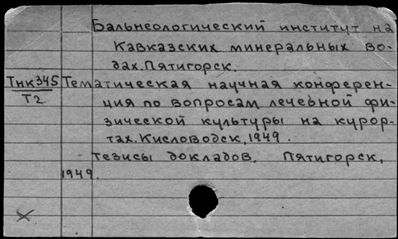 Бальнеологический институт на
Кавказских минеральных во-
дах. Пятигорск.
Тнк345 Тематическая научная конферен-
Т2 ция по вопросам лечебной фи-
зической культуры на курор-
тах. Кисловодск, 1949.
Тезисы докладов. Пятигорск,
1949.